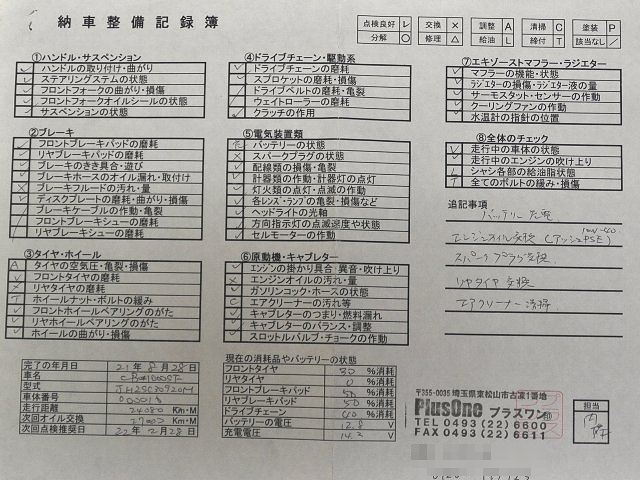 納車整備記録簿
点検良好 レ 交換 × 調整 A 清掃 C 塗装 P
分解 ○ 修理 △ 給油 L 締付 T 該当なし ／
①ハンドル・サスペンション
ハンドルの取り付け・曲がり
ステアリングステムの状態
フロントフォークの曲がり・損傷
フロントフォークオイルシールの状態
サスペンションの状態
②ブレーキ
フロントブレーキパッドの磨耗
リヤブレーキパッドの磨耗
ブレーキのきき具合・遊び
ブレーキホースのオイル漏れ・取付け
ブレーキフルードの汚れ・量
ディスクプレートの磨耗・曲がり・損傷
ブレーキケーブルの作動・亀裂
フロントブレーキシューの磨耗
リヤブレーキシューの磨耗
③タイヤ・ホイール
A タイヤの空気圧・亀裂・損傷
フロントタイヤの磨耗
× リヤタイヤの磨耗
T ホイールナット・ボルトの緩み
フロントホイールベアリングのがた
リヤホイールベアリングのがた
ホイールの曲がり・損傷
④ドライブチェーン・駆動系
ドライブチェーンの磨耗
スプロケットの磨耗・損傷
ドライブベルトの磨耗・亀裂
ウェイトローラーの磨耗
クラッチの作用
⑤電気装置類
バッテリーの状態
× スパークプラグの状態
配線類の損傷・亀裂
計器類の作動・計器灯の点灯
灯火類の点灯・点滅の作動
各レンズ・ランプの亀裂・損傷など
ヘッドライトの光軸
方向指示灯の点滅速度や状態
セルモーターの作動
⑥原動機・キャブレター
エンジンの掛かり具合・異音・吹け上り
× エンジンオイルの汚れ・量
ガソリンコック・ホースの状態
C エアクリーナーの汚れ等
キャブレターのつまり・燃料漏れ
キャブレターのバランス・調整
スロットルバルブ・チョークの作動
⑦エキゾーストマフラー・ラジエター
マフラーの機能・状態
ラジエターの損傷・ラジエター液の量
サーモスタット・センサーの作動
クーリングファンの作動
水温計の指針の位置
⑧全体のチェック
走行中の車体の状態
走行中のエンジンの吹け上り
L シャシ各部の給油脂状態
T 全てのボルトの緩み・損傷
追記事項
バッテリー充電
エンジンオイル交換
スパークプラグ交換
リヤタイヤ交換
エアクリーナー清掃
完了の年月日 21年8月28日
車名
型式
車体番号
走行距離 24080 Km・M
次回オイル交換 27000 Km・M
次回点検推奨日 22年2月28日
現在の消耗品やバッテリーの状態
フロントタイヤ 30 %消耗
リヤタイヤ 0 %消耗
フロントブレーキパッド 50 %消耗
リヤブレーキパッド 50 %消耗
ドライブチェーン 60 %消耗
バッテリーの電圧 12.8 V
充電電圧 14.2 V
〒355-0035 埼玉県東松山市古凍1番地
PlusOne プラスワン
TEL 0493(22)6600
FAX 0493(22)6611
担当